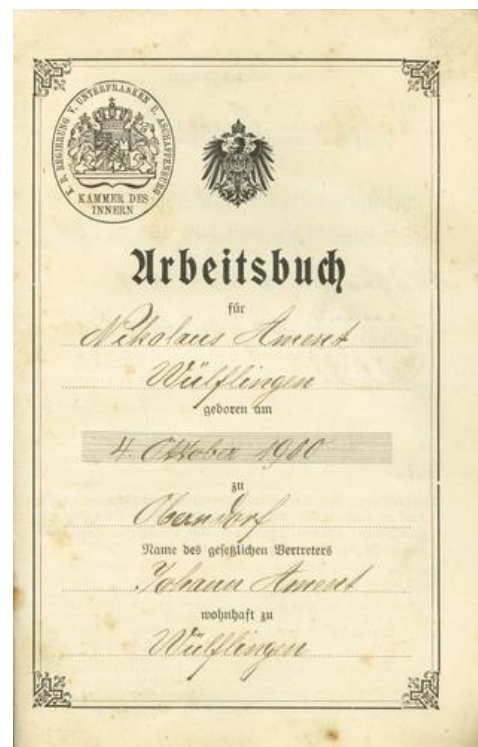 K. B. REGIERUNG V. UNTERFRANKEN U. ASCHAFFENBURG
KAMMER DES
INNERN
Arbeitsbuch
für
Nikolaus Ament
Wülflingen
geboren am
4. Oktober 1900
zu
Oberndorf
Name des gesetzlichen Vertreters
Johann Ament
wohnhaft zu
Wülflingen